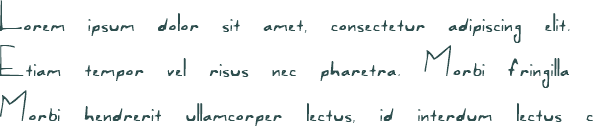 Lorem ipsum dolor sit amet, consectetur adipiscing elit.
Etiam tempor vel risus nec pharetra. Morbi fringilla
Morbi hendrerit ullamcorper lectus, id interdum lectus c